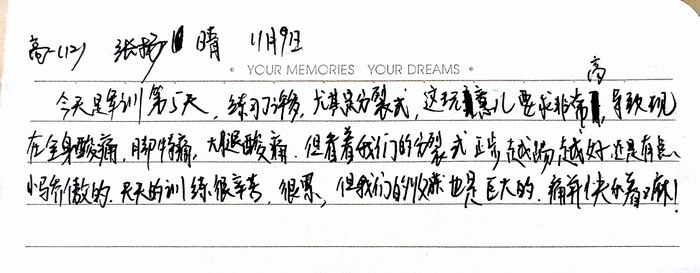 高一(12) 张扬 晴 11月9日
• YOUR MEMORIES YOUR DREAMS •
今天是军训第5天，练习许多，尤其是分裂式，这玩意儿要求非常高，导致现
在全身酸痛，脚特痛，大腿酸痛。但看着我们的分裂式正步越踢越好，还是有点
小骄傲的。天天的训练很辛苦，很累，但我们的收获也是巨大的。痛并快乐着嘛！